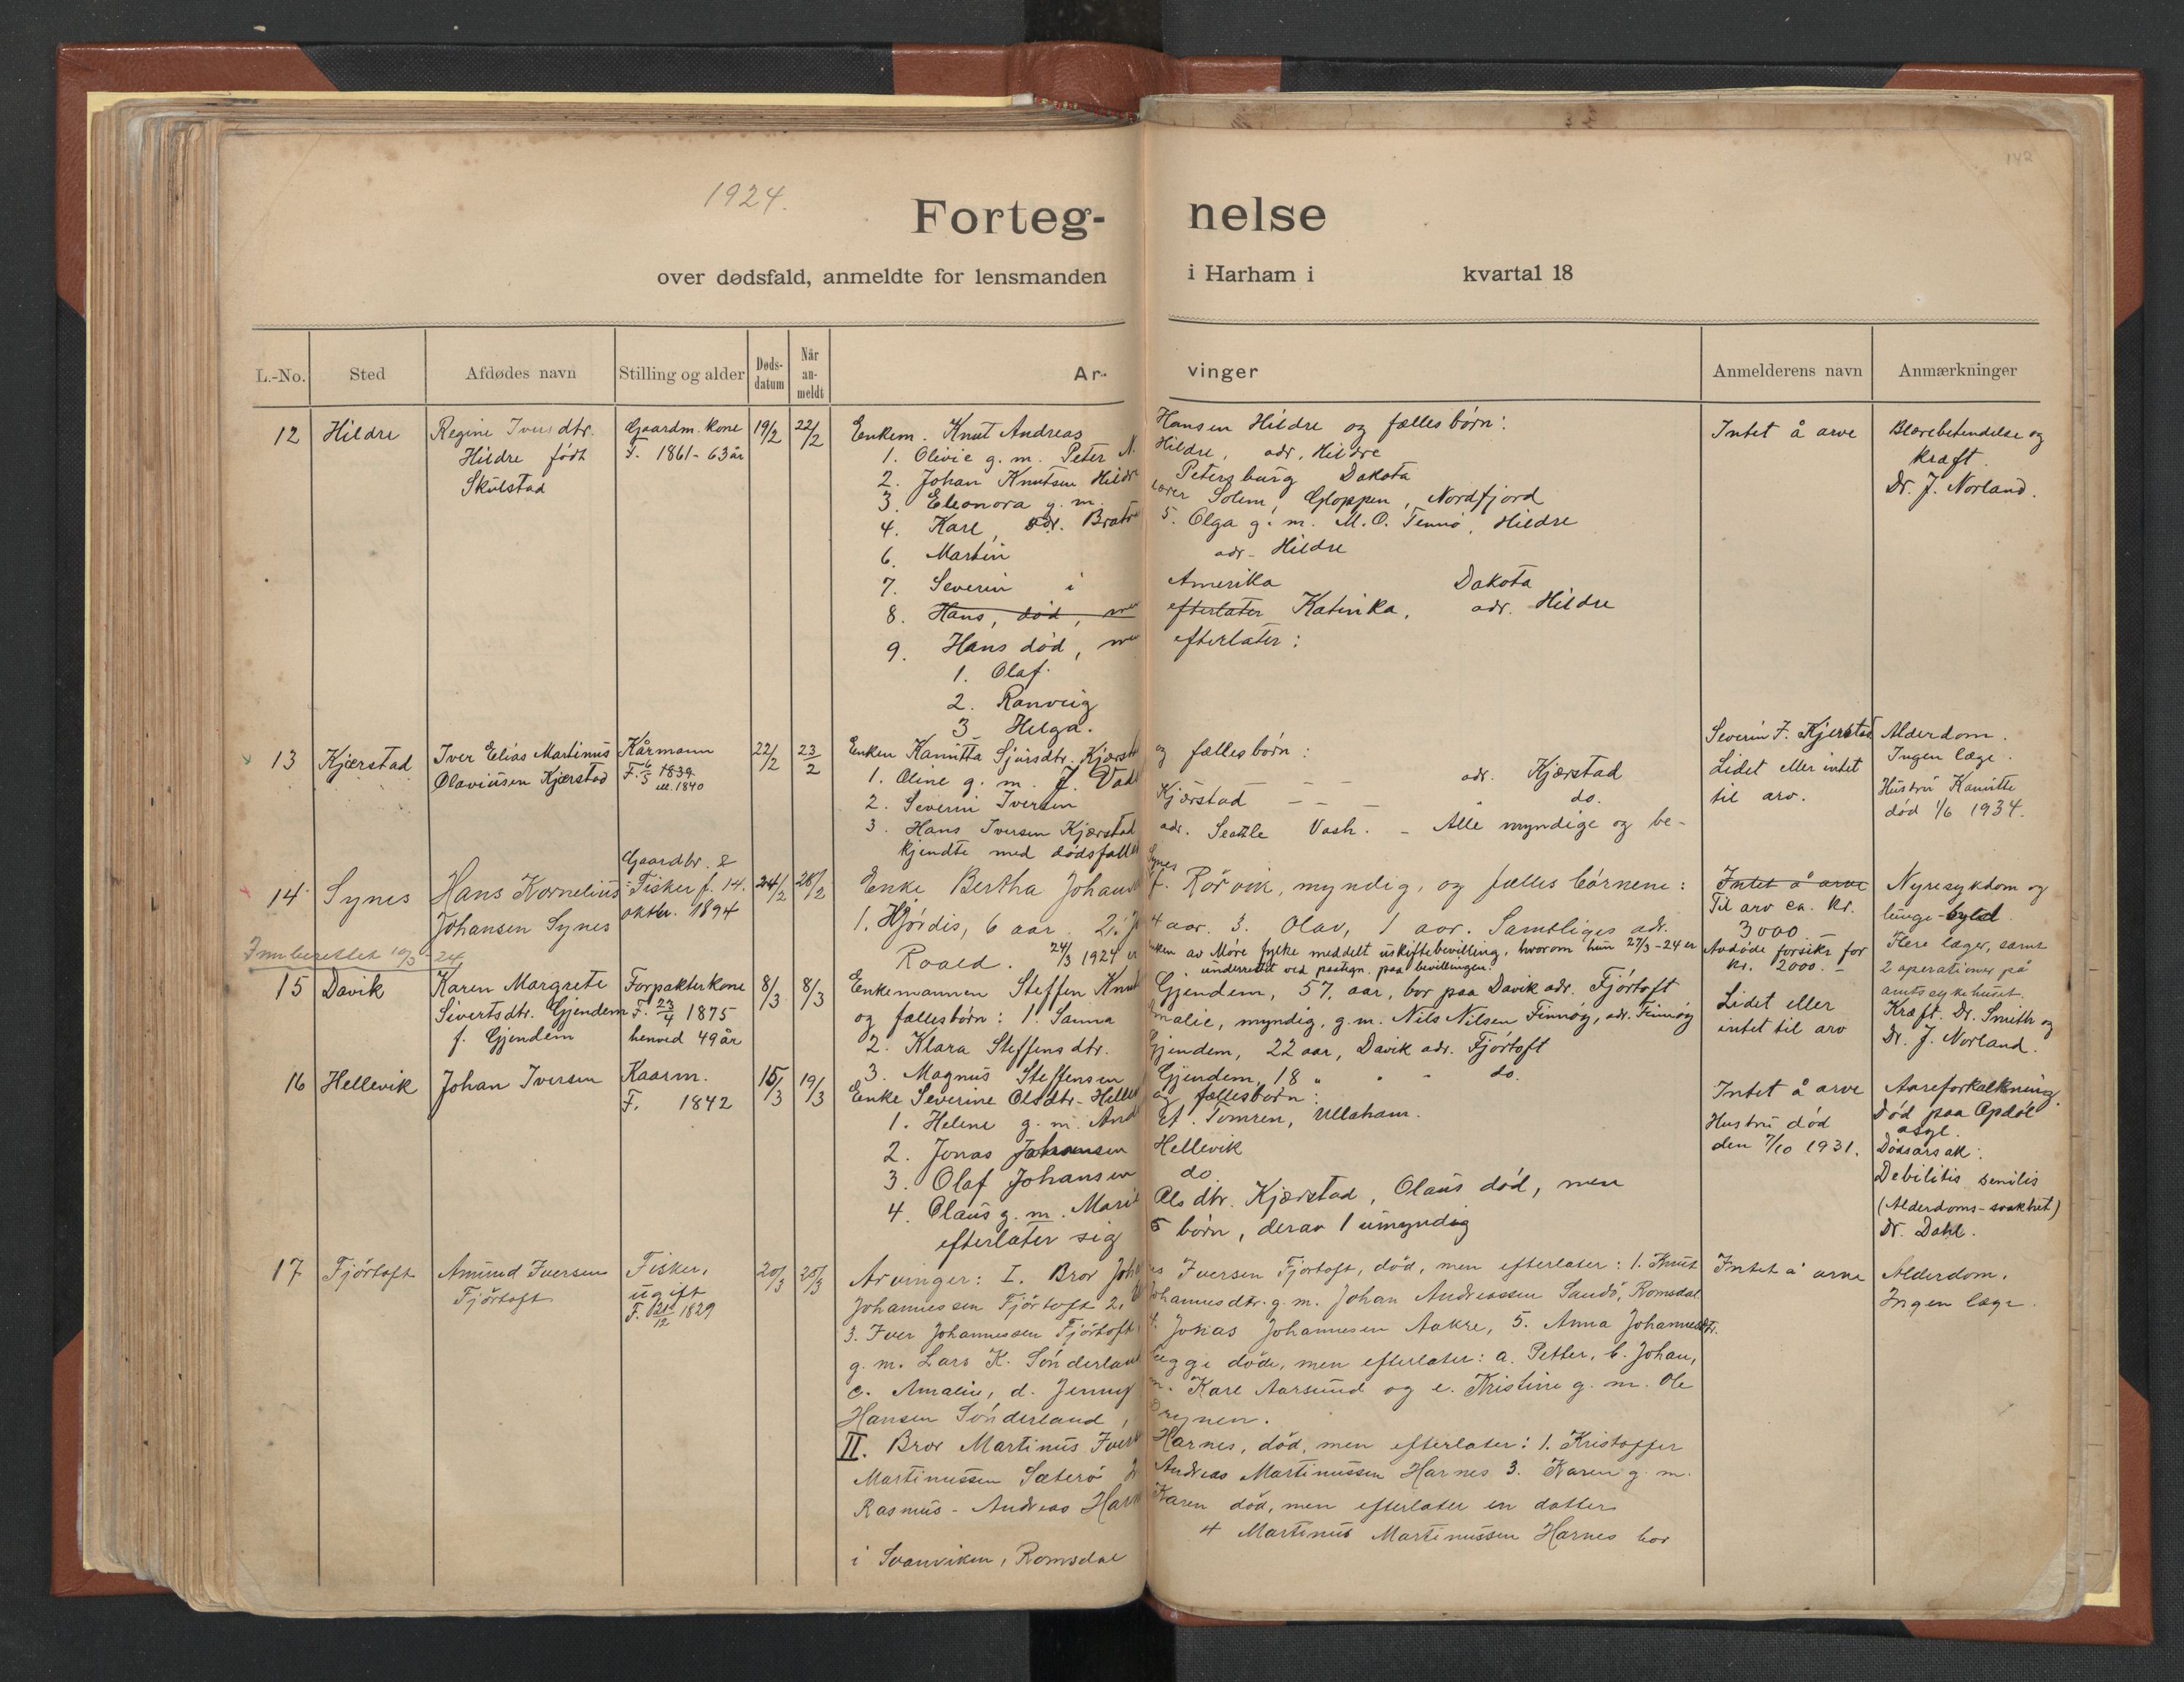 142
1924.
Forteg- nelse
over dødsfald, anmeldte for lensmanden i Harham i kvartal 18
L.-No. Sted Afdødes navn Stilling og alder Døds-datum Når an-meldt Ar- vinger Anmelderens navn Anmærkninger
12 Hildre Regine Iversdtr. Gaardm. kone 19/2 22/2 Enkem. Knut Andreas Hansen Hildre og fællesbörn: Intet å arve Blærebetendelse og
Hildre födt F. 1861 - 63 år 1. Olivie g. m. Peter N. Hildre, adr. Hildre kræft.
Skulstad 2. Johan Knutsen Hildr Petersburg Dakota Dr. J. Norland.
3. Eleonora g. m. Solem, Gloppen, Nordfjord
4. Karl, adr. 5. Olga g. m. M. O. Hildre
6. Martin adr. Hildre
7. Severin i Amerika Dakota
8. Hans, död, men efterlater Katinka, adr. Hildre
9. Hans död, men efterlater:
1. Olaf.
2. Ranveig
3 Helga.
13 Kjærstad Iver Elias Martinus Kårmann 22/2 23/2 Enken Kanutta Sjursdtr. Kjærst og fællesbörn: Severin I. Kjerstad Alderdom.
Olaviusen Kjærstad F. 6/5 1839 ell. 1840 1. Oline g. m. J. adr. Kjærstad Lidet eller intet Ingen læge.
2. Severin Iversen Kjærstad - - do. til arv. Hustru Kanutte
3. Hans Iversen Kjærstad adr. Seattle Vash. - Alle myndige og be- död 1/6 1934.
kjendte med dödsfallet
14 Synes Hans Kornelius Gaardbr. & Fisker f. 14. 24/2 28/2 Enke Bertha Johan Synes f. Rörvik, myndig, og fælles börnene: Intet å arve Nyresykdom og
Johansen Synes oktbr. 1894 1. Hjördis, 6 aar. 2. 4 aar. 3. Olav, 1 aar. Samtliges adr. Til arv ca. kr. 3000.- lunge-byld.
Roald. 24/3 1924 er enken av Möre fylke meddelt uskiftebevilling, hvorom hun 27/3-24 er Avdöde forsikr for Flere læger, samt
Innberettet 10/3-24 underrettet ved paategn. paa bevillingen. kr. 2000.- 2 operationer på
amtssykehuset.
15 Davik Karen Margrete Forpakterkone 8/3 8/3 Enkemannen Steffen Knut Gjendem, 57 aar, bor paa Davik adr. Fjörtoft Lidet eller Kræft. Dr. Smith og
Sivertsdtr. Gjendem F. 23/4 1875 og fællesbörn: 1. Sanna malie, myndig, g. m. Nils Nilsen Finnöy, adr. Finnöy intet til arv Dr. J. Norland.
f. Gjendem henved 49 år 2. Klara Steffensdtr. Gjendem, 22 aar, Davik adr. Fjörtoft
3. Magnus Steffensen Gjendem, 18 " " - do.
16 Hellevik Johan Iversen Kaarm. 15/3 19/3 Enke Severine Olsdtr. Helle og fællesbörn: Intet å arve Aareforkalkning.
F. 1842 1. Helene g. m. And Et. Tomren, Ullaham. Hustru död Död paa Opdöl asyl.
2. Jonas Johansen Hellevik den 7/10 1931. Dödsårsak:
3. Olaf Johansen do. Debilitis senilis
4. Olaus g. m. Mari Olsdtr. Kjærstad, Olaus död, men (Alderdoms-svakhet)
efterlater sig 5 börn, derav 1 umyndig Dr. Dahl.
17 Fjörtoft Amund Iversen Fisker, 20/3 25/3 Arvinger: I. Bror Joh es Iversen Fjortoft, död, men efterlater: 1. Knut Intet å arve Alderdom.
Fjörtoft ugift Johannessen Fjörtoft 2. Johannesdtr. g. m. Johan Andreassen Sandö, Romsdal Ingen læge.
F. 21/12 1829 3. Iver Johannessen Fjörtoft 4. Jonas Johannesen Aakre, 5. Anna Johannesdtr.
g. m. Lars K. Sönderland begge döde, men efterlater: a. Petter, b. Johan,
c. Amalie, d. Jenny m. Karl Aarsund og e. Kristine g. m. Ole
Hansen Sönderland, Drynen.
II. Bror Martinus Ivers Harnes, död, men efterlater: 1. Kristoffer
Martinussen Sæterö Andreas Martinussen Harnes 3. Karen g. m.
Rasmus - Andreas Harn Karen död, men efterlater en datter
4 Martinus Martinussen Harnes bor
i Svanviken, Romsdal